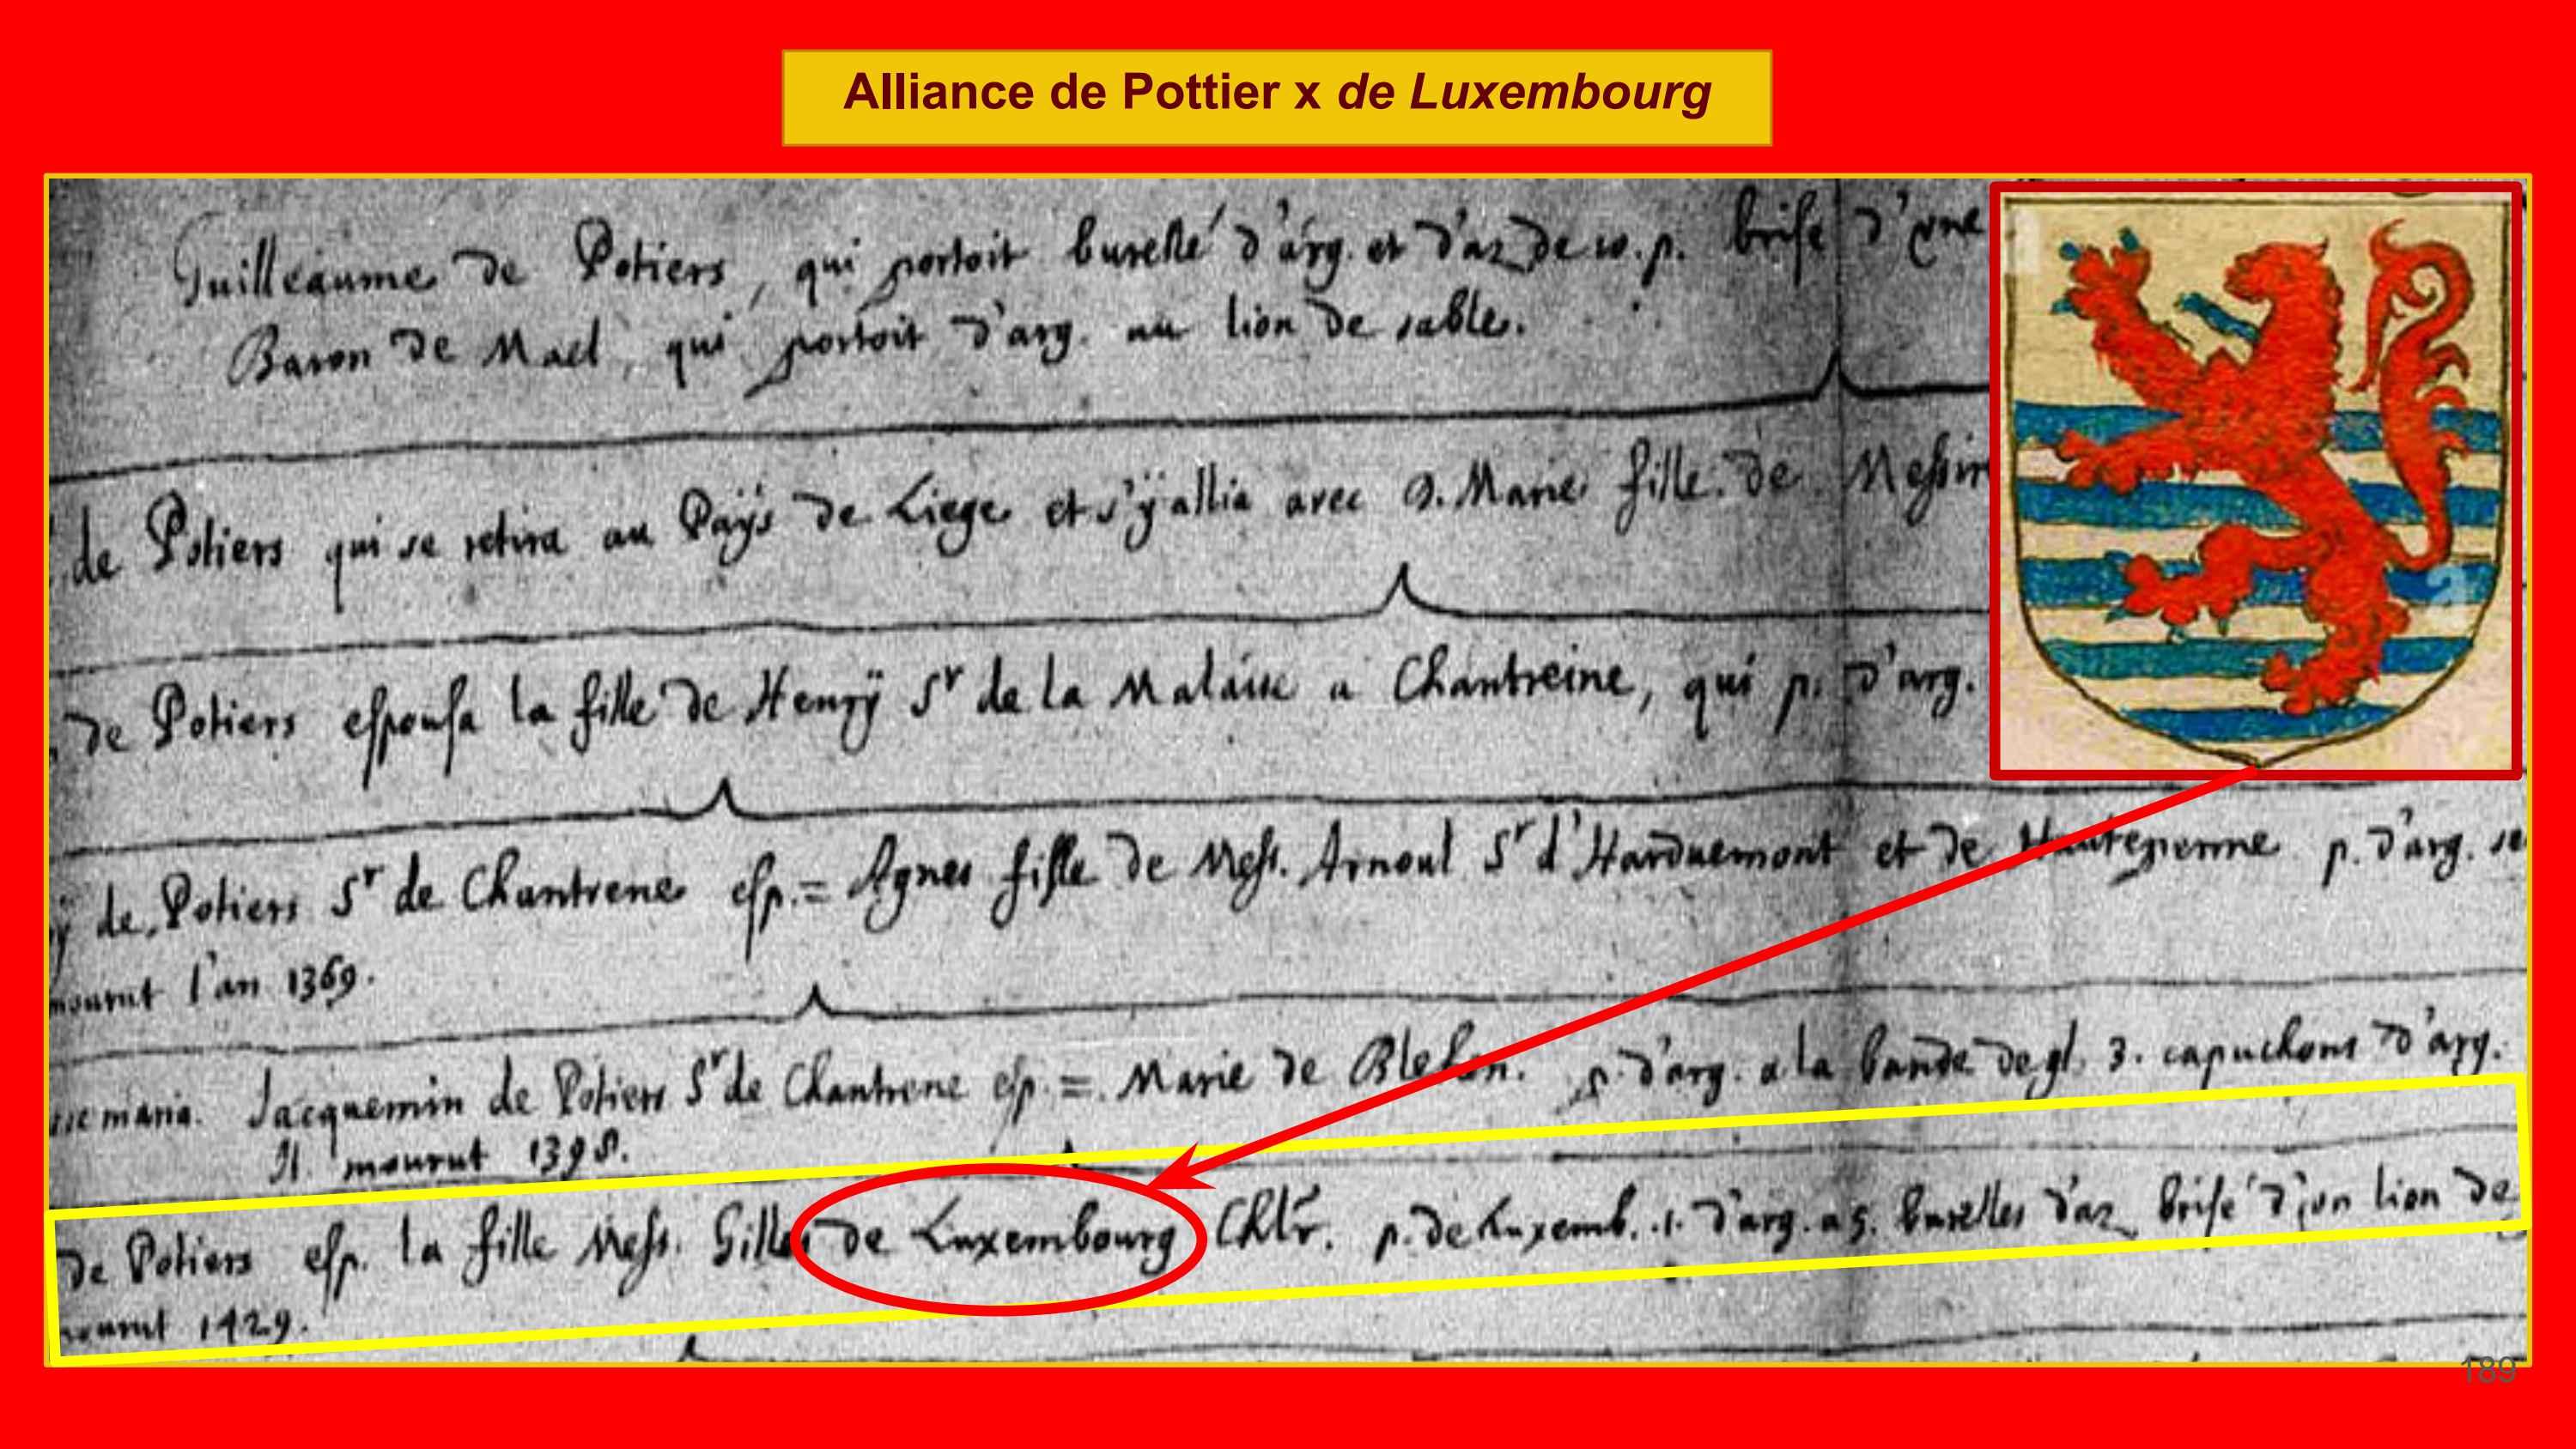 Alliance de Pottier x de Luxembourg
Guilleaume de Potiers, qui portoit burellé d'arg. et d'az de 10. p. brisé d'vne
Baron de Mael, qui portoit d'arg. au lion de sable.
de Potiers qui se retira au Païs de Liege et s'ÿ allia avec D. Marie fille de Messire
de Potiers espousa la fille de Henrÿ Sr de la Malaise a Chantreine, qui p. d'arg.
ÿ de Potiers Sr de Chantrene esp. = Agnes fille de Mess. Arnoul Sr d'Harduemont et de Hautepenne p. d'arg. se
mourut l'an 1369.
maria. Jacquemin de Potiers Sr de Chantrene esp. =. Marie de Blehen. p. d'arg. a la bande de gl. 3. capuchons d'arg.
Il mourut 1398.
de Potiers esp. la fille Mess. Gilles de Luxembourg Chlr. p. de Luxemb. .i. d'arg. a 5. burelles d'az brisé d'vn lion de
mourut 1429.
189